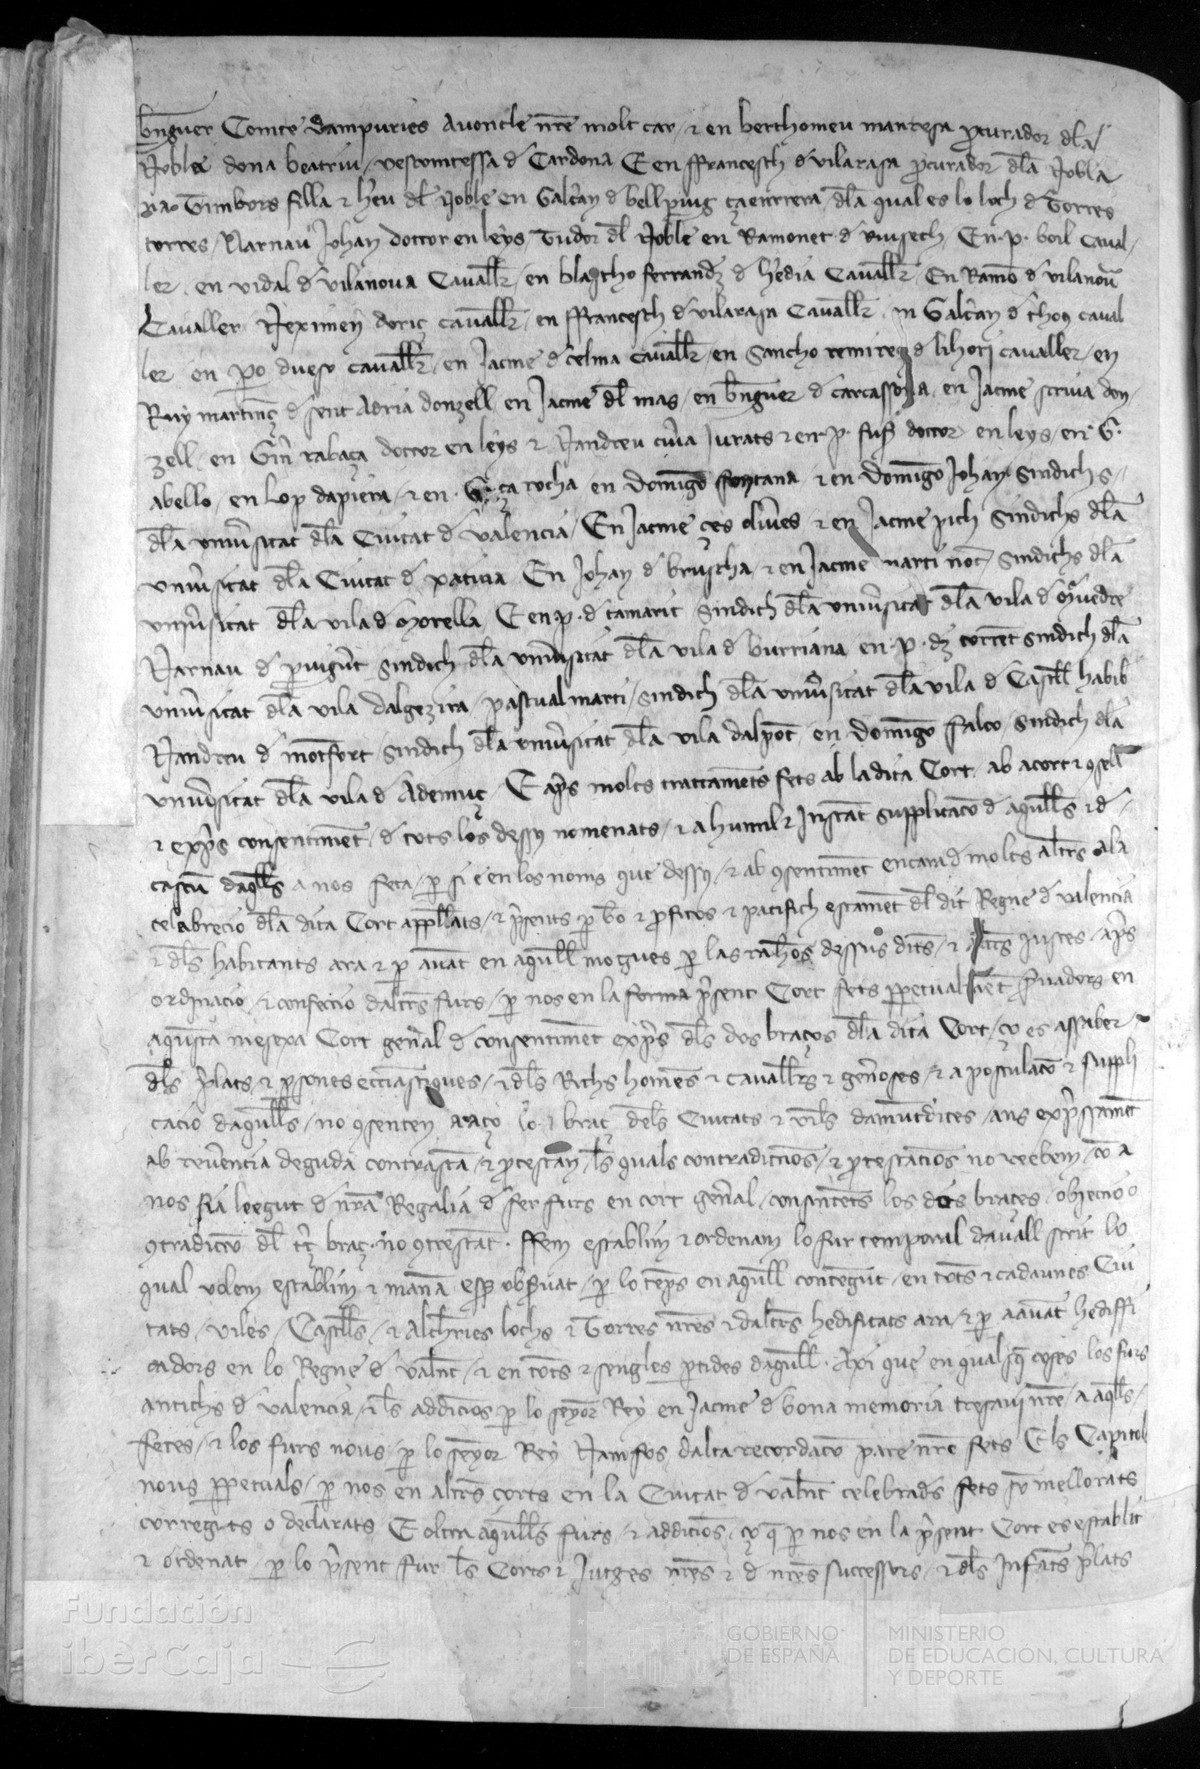 bn̄guer Comte dampuries Avoncle nr̄e molt car / ⁊ en berthomeu manresa ꝓcurador dl̄a /
Noble dona beatriu / vescomtessa d̄ Cardona E en ffrancesch d̄ vilarasa ꝓcurador dl̄a Nobla
na Timbors filla ⁊ heu dl̄ Noble en Galcān d̄ bellpuig / dl̄a qual es lo loch d̄ Torres
torres / Narnau Johan doctor en leys Tudor dl̄ Noble en Ramonet d̄ Riusech En . p . boil Caual /
ler . en vidal d̄ vilanova Cauall̄r / en blascho ferrand̄z d̄ h̄edia Cauall̄r En Ramō d̄ vilanoū
Cavaller Neximen doriç cauall̄r / en ffrancesch d̄ vilarasa Cauall̄r . en Galcān d̄ thous caual
ler en ꝑo cauall̄r / en Jacme d̄ celma cauall̄r / en Sancho remireç d̄ lihori cavaller / en
Ruy martineç d̄ sent Adria donzell en Jacme dl̄ mas / en bn̄guer d̄ carcassona . en Jacme scriva don /
zell / en Gm̄ rabaça doctor en leys ⁊ Nandreu Jurats ⁊ en . p . fus̄t doctor en leys / en . G .
abello / en Lop dapiera / ⁊ en . G . ça rocha en Domīgo fontana ⁊ en Domīgo Johan Sindichs /
dl̄a vniūsitat dl̄a Ciutat d̄ valencia / En Jacme çes oliūes ⁊ en Jacme pich Sindichs dl̄a
vniūsitat dl̄a Ciutat d̄ xatiua En Johan d̄ bruscha / ⁊ en Jacme marti not̄ Sindichs dl̄a
vniūsitat dl̄a vila d̄ Morella E en p . d̄ tamarit Sindich dl̄a vniūsitat dl̄a vila d̄ Muredre
Narnau d̄ puigūt Sindich dl̄a vniūsitat dl̄a vila d̄ burriana en . p . d̄z torrēt sindich dl̄a
vniūsitat dl̄a vila dalgezira / pastual marti / sindich dl̄a vniūsitat dl̄a vila d̄ Castell habib
Nandreu d̄ mōtfort Sindich dl̄a vniūsitat dl̄a vila dalpōt en Domīgo falco Sindich dl̄a
vniūsitat dl̄a vila d̄ Ademuç E ap̄s molts tractamēts fets ab la dita Cort . ab acort ⁊ ꝯsell
⁊ exp̄s consentimēt . d̄ tots los dessus nomenats / ⁊ a humil ⁊ Instāt supplicacō d̄ aquells ⁊ d̄
cascū daqll̄s a nos feta / ꝑ si e en los noms que dessus / ⁊ ab ꝯsentimēt encara d̄ molts altr̄s a la
celebrecio dl̄a dita Cort appll̄ats / ⁊ p̄sents ꝑ bō ⁊ ꝓfitos ⁊ pacifich estamēt dl̄ dit Regne d̄ valencia
⁊ dl̄s habitants ara ⁊ ꝑ auāt en aquell mogues ꝑ las rahōs dessus dits / ⁊ altr̄s Justes . ap̄s
ordinacio / ⁊ confectio daltr̄s furs / ꝑ nos en la forma p̄sent Cort fets ꝑpetualmēt duradors en
aquesta mesexa Cort gen̄al d̄ consentimēt exp̄s dl̄s dos braços dl̄a dita Cort / ço es assaber
dl̄s p̄lats / ⁊ ꝑsones ecclīastiques / ⁊ dl̄s Richs homēs ⁊ cauallr̄s ⁊ gen̄oses / ⁊ a postulacō ⁊ suppli
cacio daquells / no ꝯsenten aaço lo . braç dels Ciutats ⁊ viles damūtdites / ans exp̄ssamēt
ab reūencia deguda contrastā / ⁊ ꝓtestan / ls̄ quals contradiccōs / ⁊ ꝓtestaciōs no reebem / cō a
nos sia leegut d̄ nr̄a Regalia d̄ fer furs en cort gen̄al / consintēts los dos braces / objeccio o
ꝯtradiccō dl̄ terç braç . no ꝯtrestāt . ffem establim ⁊ ordenam lo fur temporal dauall scrit lo
qual volem establim ⁊ manā esser obs̄uat / ꝑ lo tēps en aquell contēgut / en tots ⁊ cadaunes Ciu
tats / viles / Castells / ⁊ Alch̄ries lochs ⁊ Torres nr̄es ⁊ daltr̄s hedificats ara / ⁊ ꝑ aauāt hediffi
cadors en lo Regne d̄ valn̄c / ⁊ en tots ⁊ sengles ꝑtides daquell . Axi que en qual sq̄ coses los furs
antichs d̄ valencia / ⁊ ls̄ addicios ꝑ lo senyor Rey en Jacme d̄ bona memoria tresaui nr̄e / a aqll̄s /
fetes / ⁊ los furs nous / ꝑ lo senyor Rey Namfos dalta recordacō pare nr̄e fets E ls Capitols
nous ꝑpetuals / ꝑ nos en altr̄s corts en la Ciutat d̄ valn̄c celebrads fets mellorats
corregits o declarats / E oltra aquells furs / ⁊ addiciōs / ço q̄ ꝑ nos en la p̄sent Cort es establit
⁊ ordenat / ꝑ lo p̄sent fur ls̄ Corts ⁊ Jutges nr̄es ⁊ d̄ nr̄es successors / ⁊ dl̄s Infāts p̄lats
Fundación
iberCaja
GOBIERNO
DE ESPAÑA
MINISTERIO
DE EDUCACIÓN, CULTURA
Y DEPORTE